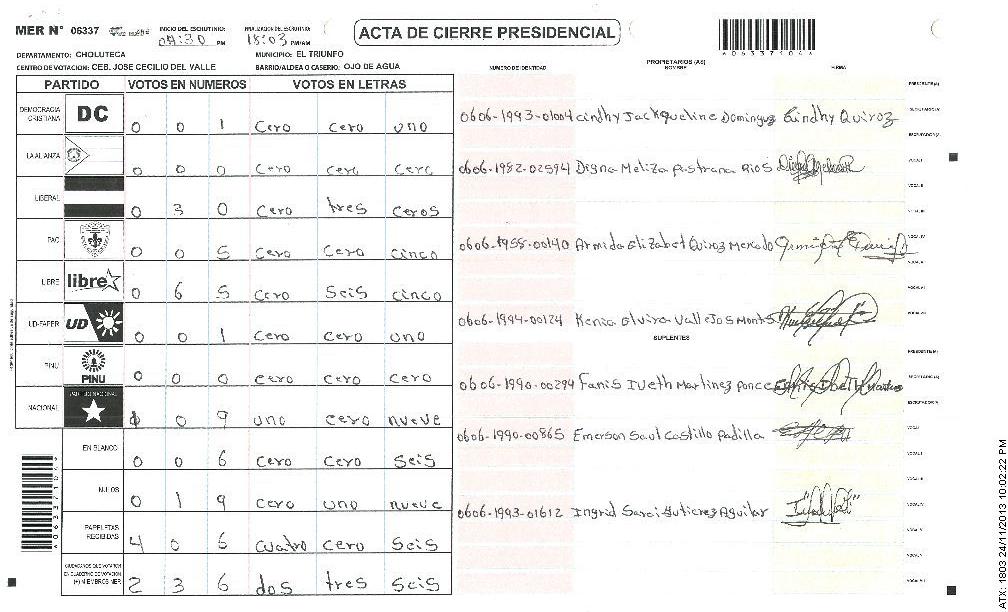 MER N° 06337 INICIO DEL ESCRUTINIO: 04:30 PM FINALIZACION DEL ESCRUTINIO: 18:03 PM/AM ACTA DE CIERRE PRESIDENCIAL
DEPARTAMENTO: CHOLUTECA MUNICIPIO: EL TRIUNFO
CENTRO DE VOTACION: CEB. JOSE CECILIO DEL VALLE BARRIO/ALDEA O CASERIO: OJO DE AGUA
NUMERO DE IDENTIDAD PROPIETARIOS (AS) NOMBRE FIRMA
PARTIDO VOTOS EN NUMEROS VOTOS EN LETRAS
DEMOCRACIA CRISTIANA DC 0 0 1 cero cero uno
LA ALIANZA 0 0 0 cero cero cero
LIBERAL 0 3 0 cero tres ceros
PAC 0 0 5 cero cero cinco
LIBRE libre 0 6 5 cero seis cinco
UD-FAPER UD 0 0 1 cero cero uno
PINU PINU 0 0 0 cero cero cero
NACIONAL PARTIDO NACIONAL 1 0 9 uno cero nueve
EN BLANCO 0 0 6 cero cero seis
NULOS 0 1 9 cero uno nueve
PAPELETAS RECIBIDAS 4 0 6 cuatro cero seis
CIUDADANOS QUE VOTARON EN CUADERNO DE VOTACION (+) MIEMBROS MER 2 3 6 dos tres seis
0606-1993-01004 Cindhy Jackqueline Dominguz Cindhy Quiroz
0606-1982-02594 Digna Meliza Pastrana Rios
0606-1958-00140 Armida Elizabet Quiroz Mercado
0606-1994-00124 Kenia Elvira Vallejos Monts
SUPLENTES
0606-1990-00294 Fanis Iveth Martinez Ponce
0606-1990-00865 Emerson Saul Castillo Padilla
0606-1993-01612 Ingrid Saraí Gutierez Aguilar
PRESIDENTE (A)
SECRETARIO (A)
ESCRUTADOR (A)
VOCAL I
VOCAL II
VOCAL III
VOCAL IV
VOCAL V
VOCAL VI
VOCAL VII
PRESIDENTE (A)
SECRETARIO (A)
ESCRUTADOR (A)
VOCAL I
VOCAL II
VOCAL III
VOCAL IV
VOCAL V
VOCAL VI
VOCAL VII
A063371046
A063371046
ATX: 1803 24/11/2013 10:02:22 PM